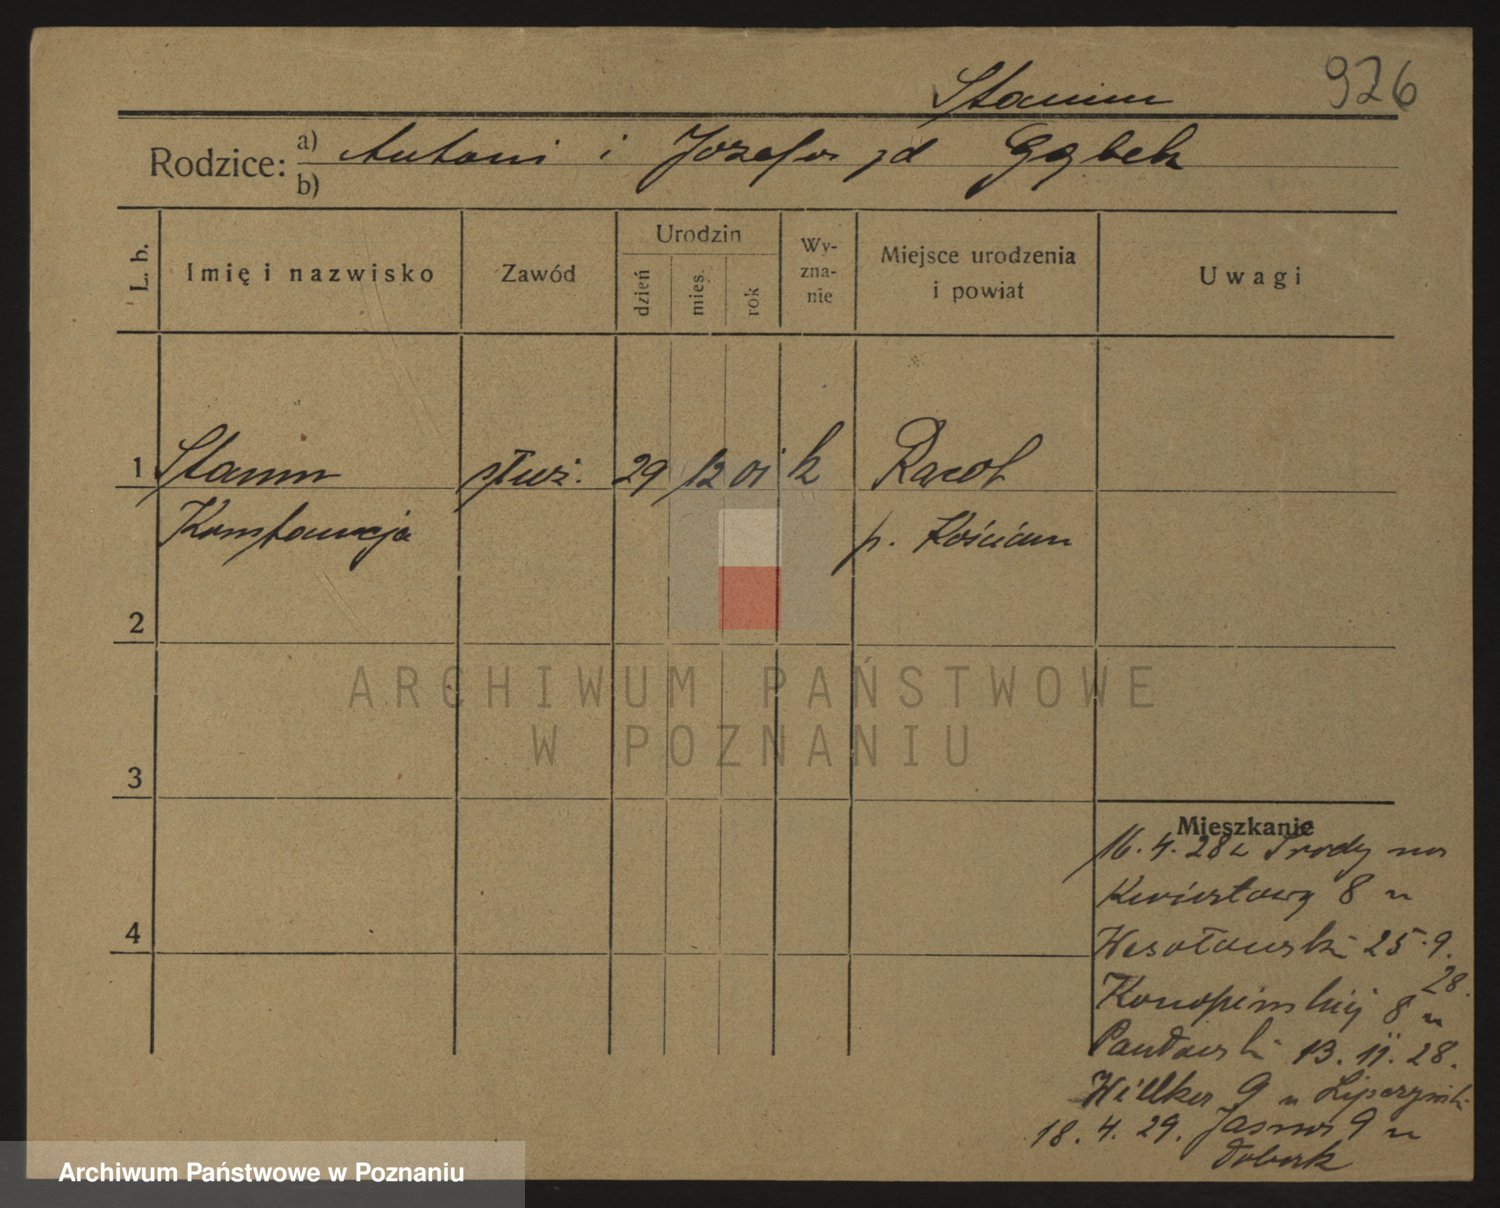 926
Stamm
Rodzice: a) Antoni i Józefa zd Gąbek
b)
L. b.
Imię i nazwisko
Zawód
Urodzin
dzień
mies.
rok
Wy-
zna-
nie
Miejsce urodzenia
i powiat
Uwagi
1 Stamm służ. 29 12 01 k Racot
Konstancja p. Kościan
2
3
4
ARCHIWUM PAŃSTWOWE
W POZNANIU
Mieszkanie
16.4.28 z Środy na
Kwiatową 8 u
Wesołowski 25.9.
28.
Konopnickiej 8 u
Pawłowski 13.11.28.
Willka 9 u
18.4.29. Jasna 9 u
Archiwum Państwowe w Poznaniu